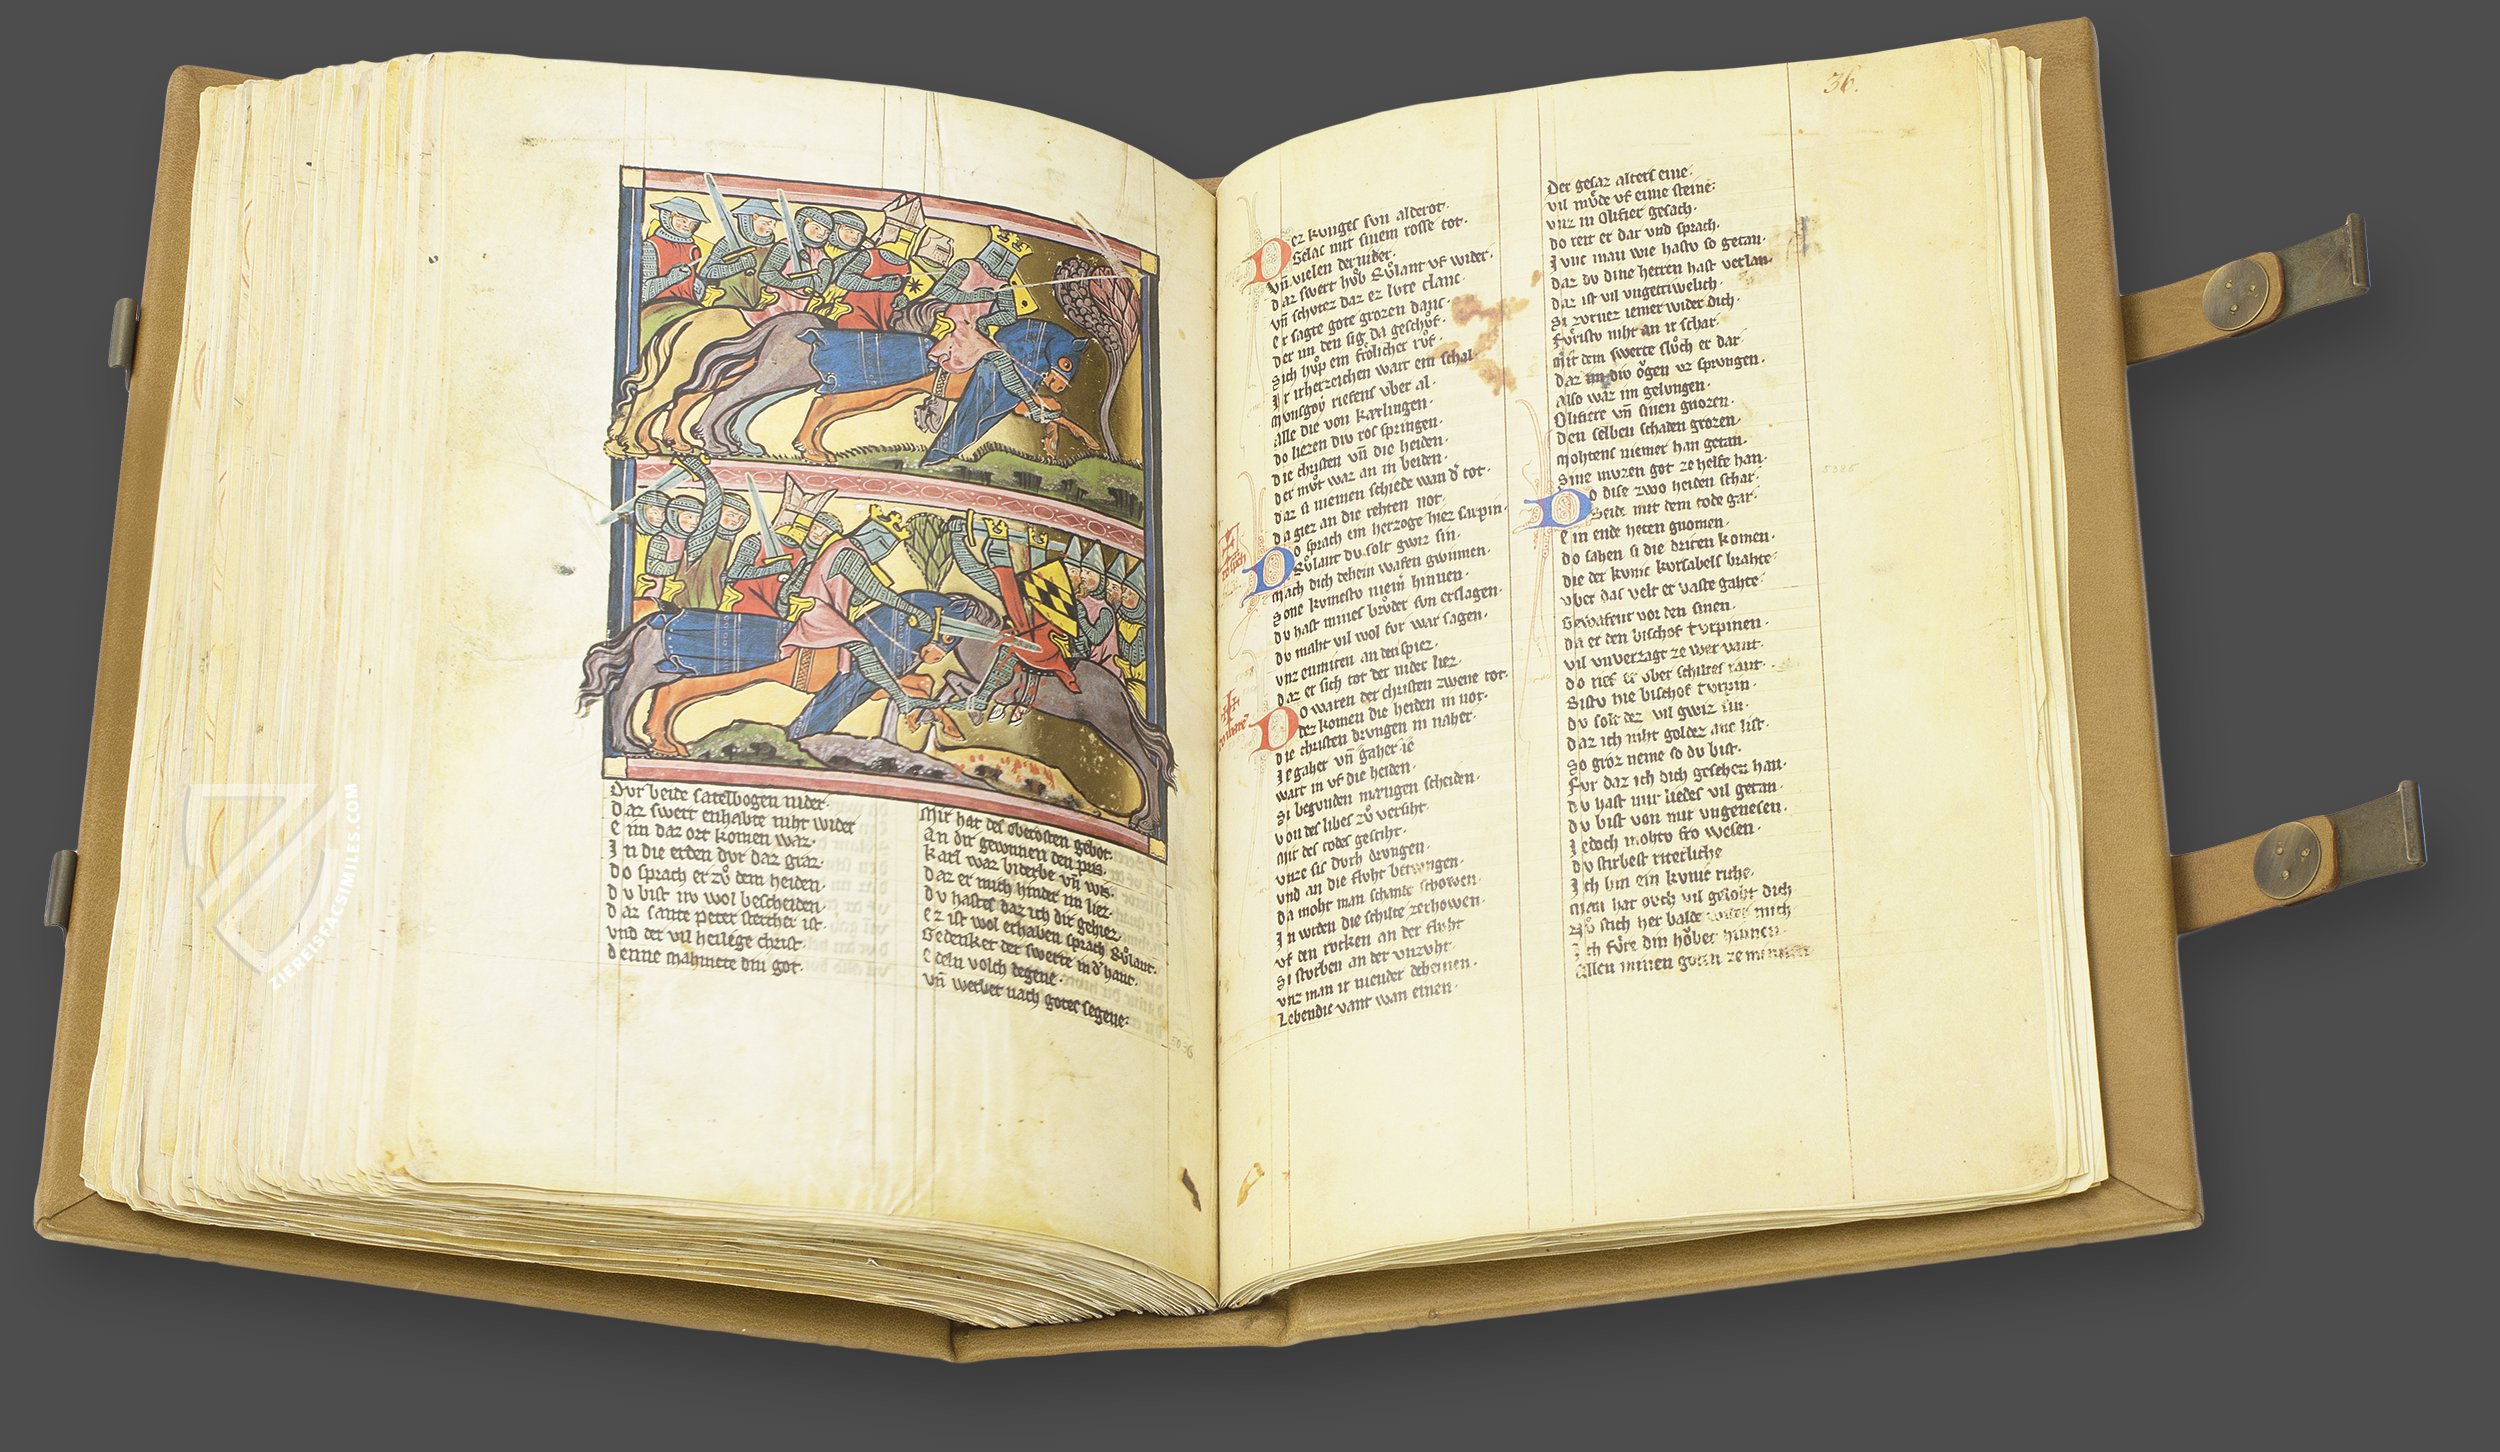 Dvr beide satelbogen nider·
Daz swert enhabte niht wider
E im daz ort komen waz·
In die erden dvr daz graz·
Do sprach er zů dem heiden·
Dv bist nv wol bescheiden·
Daz sante peter stercher ist·
vnd der vil heilige christ·
denne Mahmete din got·
Mir hat des obersten gebot·
An dir gewunnen den pris·
Karl waz biderbe vn̄ wis·
Daz er mich hinder im liez·
Dv hastes daz ich dir gehiez
Ez ist wol erhaben sprach Růlant·
Gedenket der swerte in d' hant·
Edeln volch degene·
vn̄ werbet nach gotes segene·
5036
36.
Dez kvniges svn alderot·
Gelac mit sinem rosse tot·
vn̄ vielen der nider·
Daz swert hůb Růlant vf wider·
vn̄ schvtez daz ez lvte clanc·
Er sagte gote grozen danc·
Der im den sig da geschůf·
Sich hůp ein frolicher růf·
Ir irherzeichen wart ein schal·
Mvnsgoy riefens vber al·
Alle die von Kærlingen·
Do liezen div ros springen·
Die christen vn̄ die heiden·
Der mvt waz an in beiden·
Daz si niemen schiede wan d' tot·
Da gier an die rehten not·
Do sprach ein herzoge hiez Falpin·
Růlant dv solt gwiz sin·
Mach dich dehein wafen gwinnen·
Sone kvmestv niem' hinnen·
Dv hast mines brůder svn erslagen·
Dv maht vil wol for war sagen·
vnz enmiten an den spiez·
Daz er sich tot der nider liez·
Do waren der christen zwene tot·
Dez komen die heiden in not·
Die christen drvngen in naher·
Ie gaher vn̄ gaher ie
wart in vf die heiden·
Si begvnden mæzigen scheiden·
von des libes zů versiht·
Mit des todes geschiht·
vnze sie dvrh drvngen·
vnd an die flvht betwngen·
Da moht man schande schowen·
In wrden die schilte zerhowen·
vf den rvcken an der flvht
Si stvrben an der vnzvht·
vnz man ir niender deheinen·
Lebendic vant wan einen·
Der gesaz alters eine·
vil mv̊de vf eime steine·
vnz in Olifier gesach·
Do reit er dar vnd sprach·
Ivnc man wie hastv so getan·
Daz dv dine herren hast verlan·
Daz ist vil vngetriwelich·
Si zvrnez iemer wider dich·
Fůristv niht an ir schar·
Mit dem swerte slůch er dar
Daz im div ǒgen vz sprvngen·
Also waz im gelvngen·
Olifiere vn̄ sinen gnozen·
Den selben schaden grozen·
Mohtens niemer han getan·
Sine mvzen got ze helfe han·
Do dise zwo heiden schar·
Beide mit dem tode gar·
Ein ende heten gnomen·
Do sahen si die driten komen·
Die der kvnic kvrsabels brahte·
vber daz velt er vaste gahte·
Gewafent vor den sinen·
Da er den bischof Tvrpinen·
vil vnverzagt ze wer vant·
Do rief er vber schiltes rant·
Bistv hie bischof Tvrpin·
Dv solt dez vil gwiz sin·
Daz ich niht goldez anc list·
So groz neme so dv bist·
Fvr daz ich dich gesehen han·
Dv hast mir leides vil getan·
Dv bist von mir vngenesen·
Iedoch mohtv fro wesen·
Dv stirbest riterliche
Ich bin ein kvnic riche·
Man hat ovch vil gelobt dich
Nv̊ stich her balde wider mich·
Ich fůre din hǒbet hinnen·
Allen minen goten ze minnen
5086
ZIEREISFACSIMILES.COM